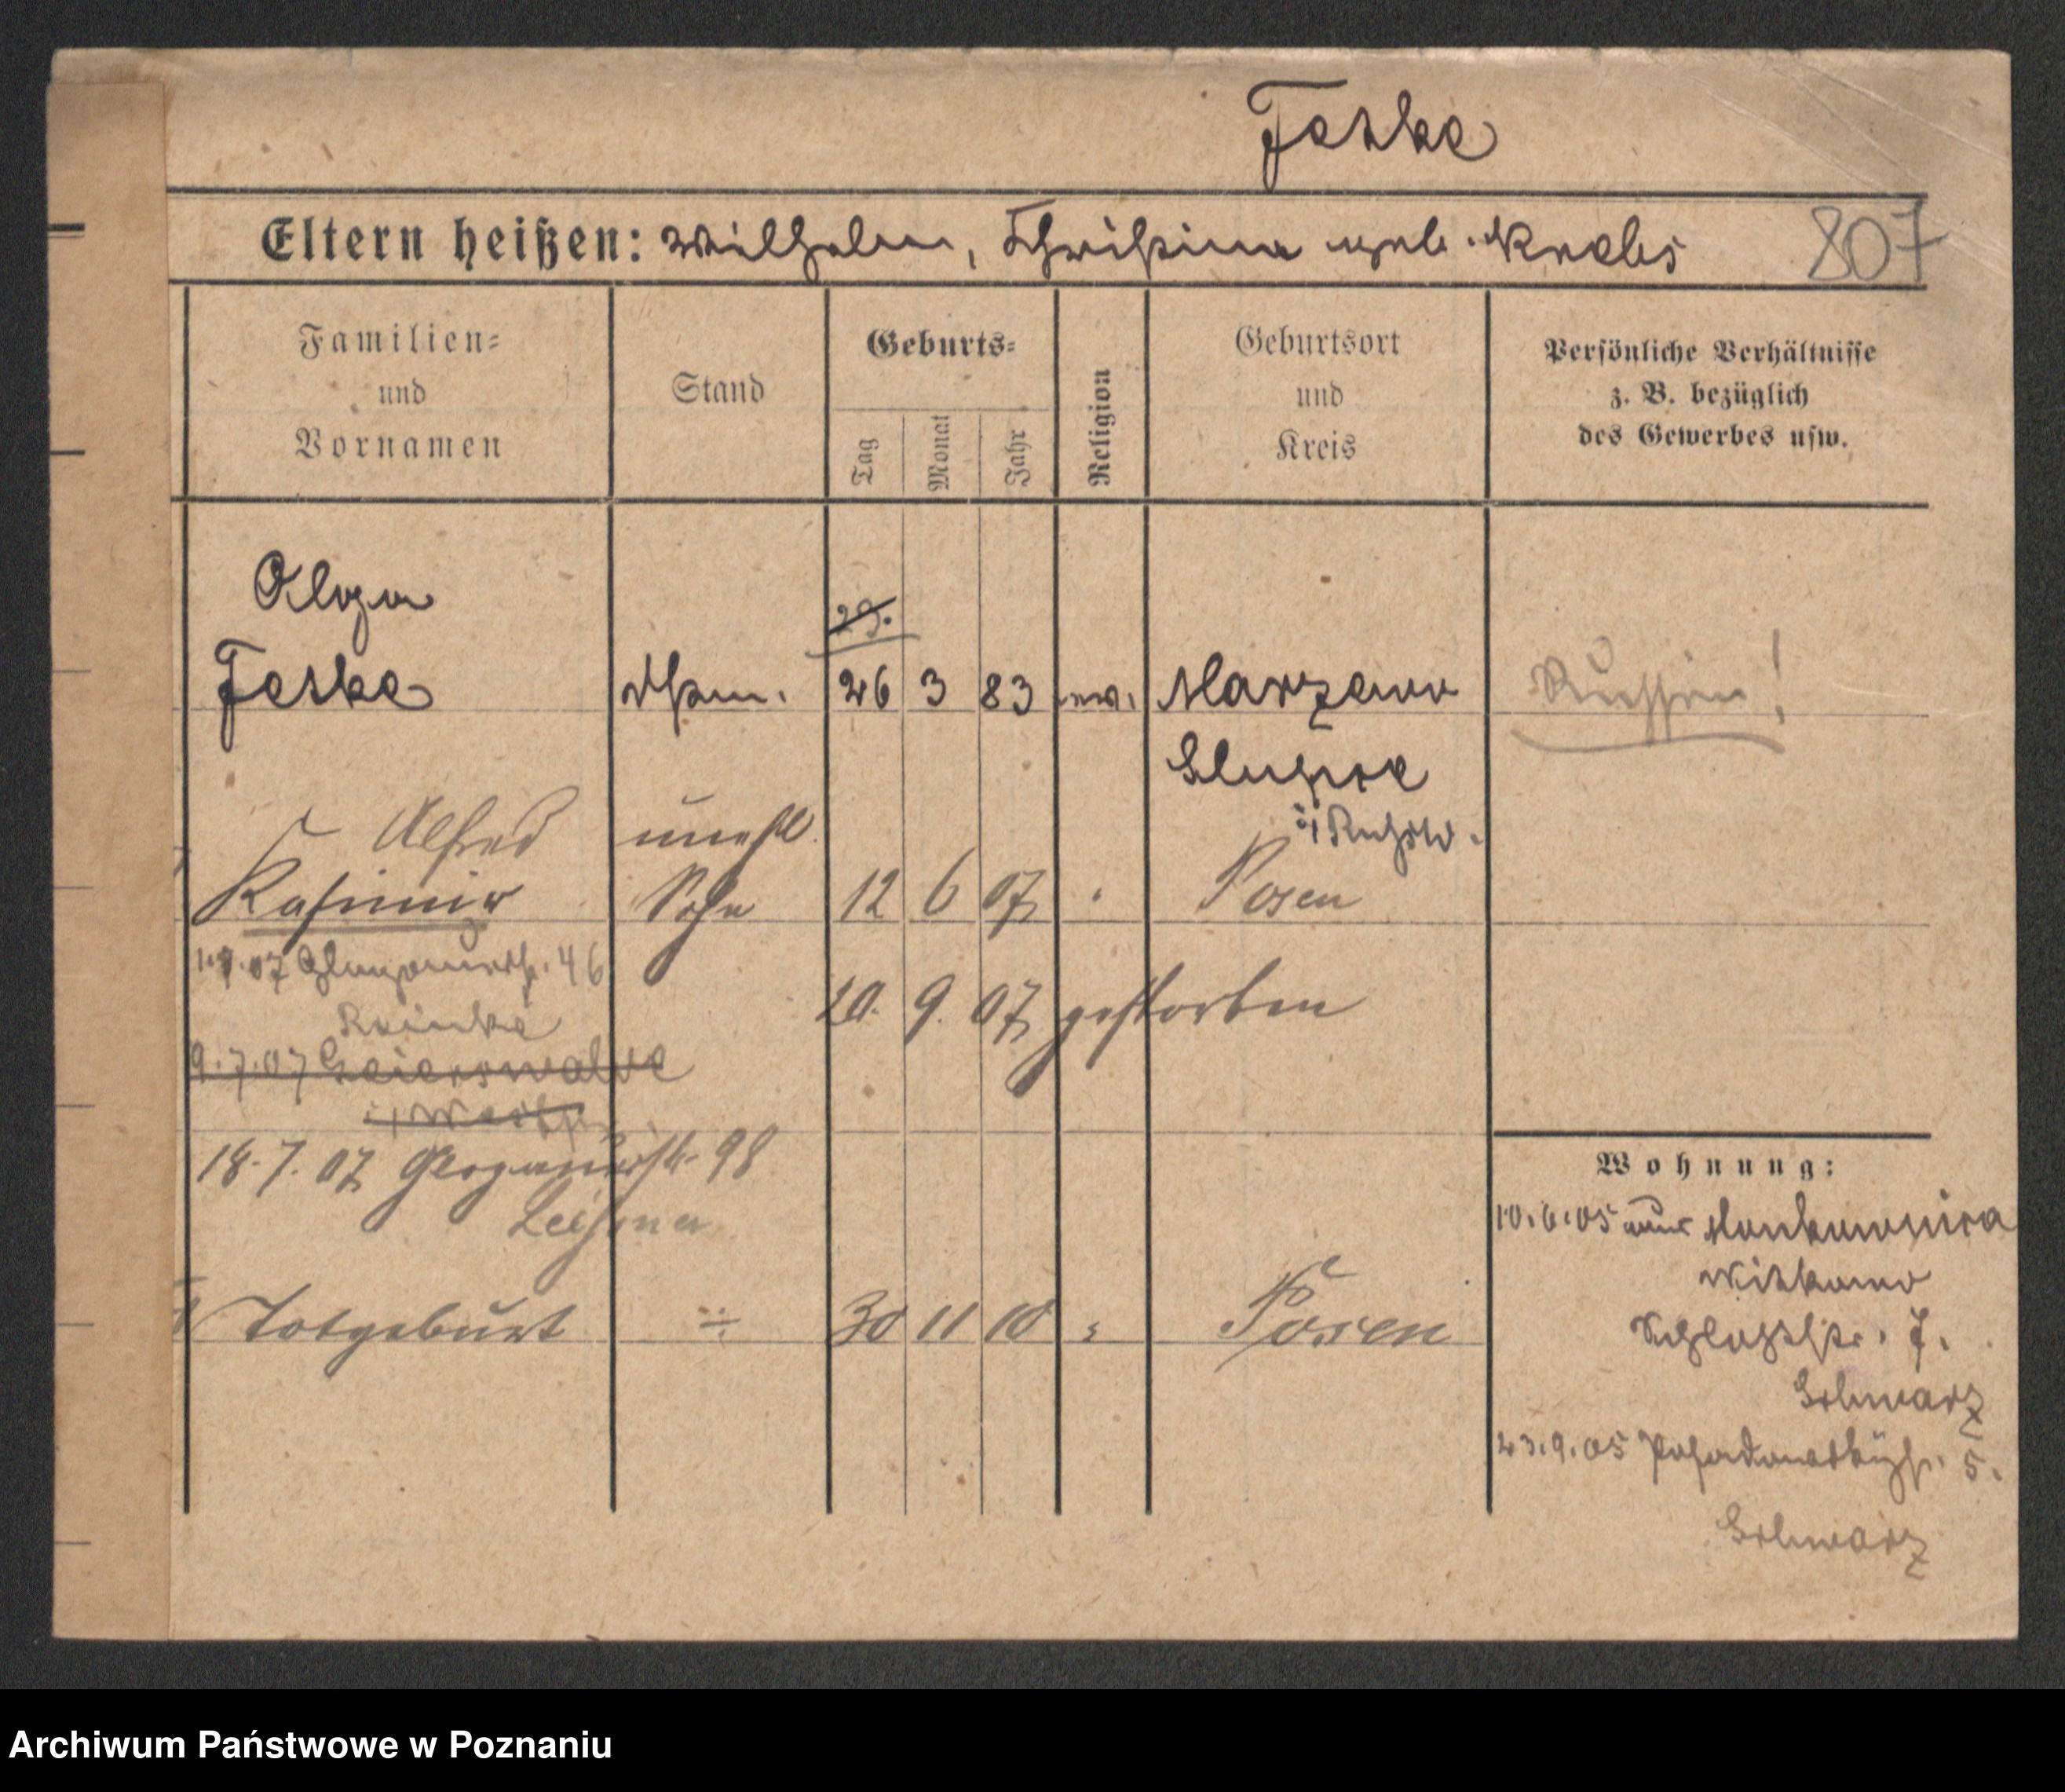 Feske
Eltern heißen: Wilhelm, Christina geb. Krebs
807
Familien- und Vornamen
Stand
Geburts-
Tag
Monat
Jahr
Religion
Geburtsort und Kreis
Persönliche Verhältnisse z. B. bezüglich des Gewerbes usw.
Olga
29.
Feske
26 3 83 ev.
Russin!
Slupce
Alfred unehl.
i/ Russld.
Kasimir Sohn 12 6 07 " Posen
1.7.07 Glogauerstr. 46
Reinke
20. 9. 07 gestorben
9.7.07 Geierswalde
18.7.07 Glogauerstr. 98
Totgeburt ÷ 30 11 10 " Posen
Wohnung:
10.6.05 aus
Witkowo
7.
Schwarz
23.9.05 5.
Schwarz
Archiwum Państwowe w Poznaniu